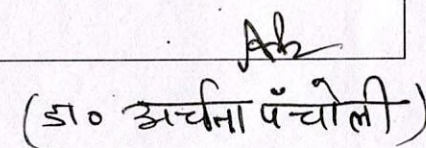 (डा० अर्चना पँचोली)